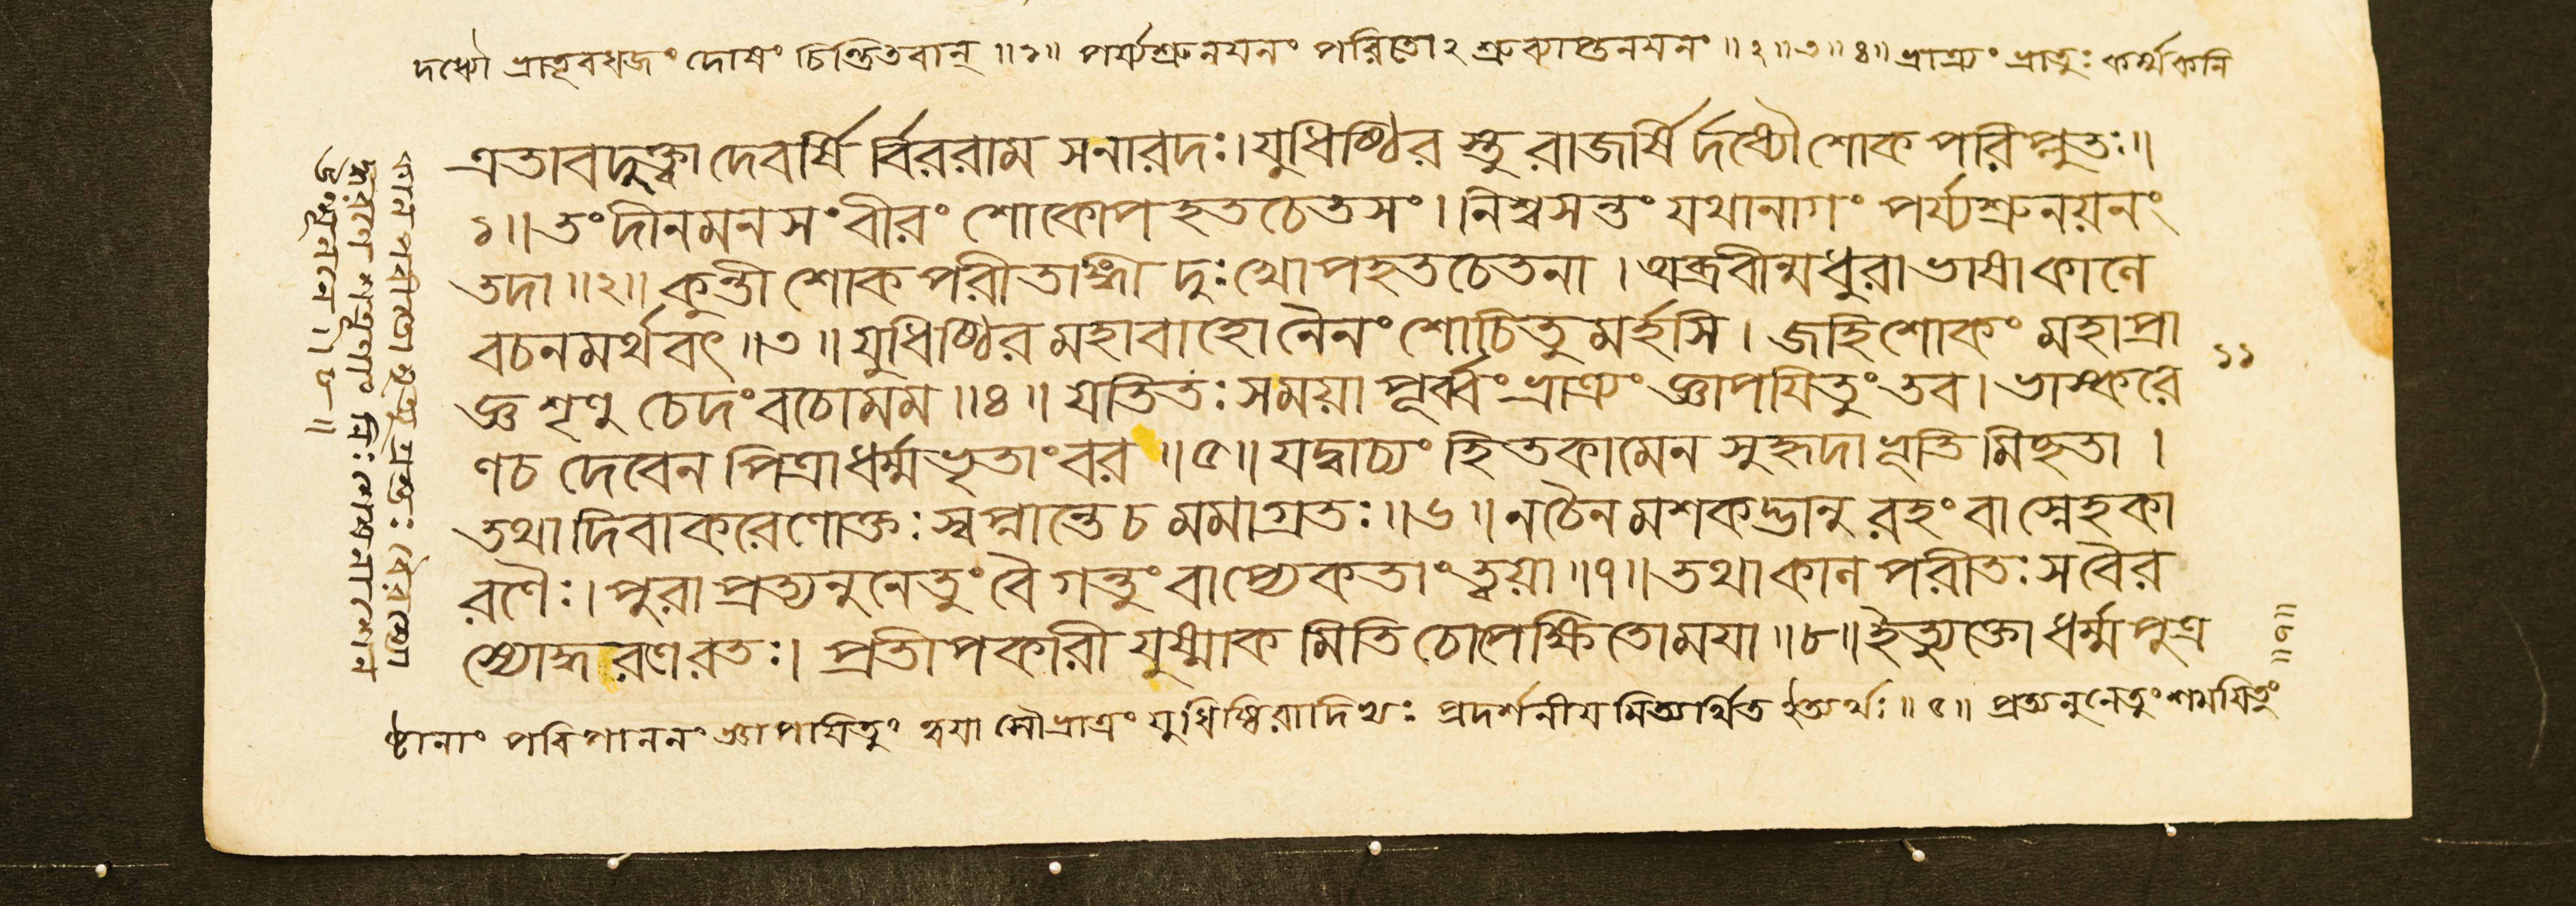 দধ্যৌ ভ্রাতৃবধজং দোষং চিন্তিতবান্ ॥১॥ পর্য্যশ্রুনয়নং পরিতোঽশ্রুব্যাপ্তনয়নং ॥২॥৩॥৪॥ ভ্রাত্র্যং ভ্রাতুঃ কর্ম্মকনি
এতাবদুক্ত্বা দেবর্ষি র্বিররাম সনারদঃ। যুধিষ্ঠির স্তু রাজর্ষি র্দধ্যৌ শোক পরিপ্লুতঃ॥
১॥ তং দীনমনসং বীরং শোকোপহতচেতসং। নিশ্বসন্তং যথানাগং পর্য্যশ্রুনয়নং
তদা ॥২॥ কুন্তী শোক পরীতাঙ্গী দুঃখোপহতচেতনা। অব্রবীন্মধুরাভাষা কালে
বচনমর্থবৎ ॥৩॥ যুধিষ্ঠির মহাবাহো নৈনং শোচিতুমর্হসি। জহি শোকং মহাপ্রা
জ্ঞ শৃণু চেদং বচোমম ॥৪॥ যতিতঃ সময়া পূর্ব্বং ভ্রাত্র্যং জ্ঞাপয়িতুং তব। ভাস্করে
ণচ দেবেন পিত্রা ধর্ম্মভৃতাংবর ॥৫॥ যদ্বাচ্যং হিতকামেন সুহৃদা ভূতিমিচ্ছতা।
তথা দিবাকরেণোক্তঃ স্বপ্নান্তে চ মমাগ্রতঃ॥৬॥ নচৈনমশকদ্ভানু রহং বা স্নেহকা
রণৈঃ। পুরা প্রত্যনুনেতুং বৈ গন্তুং বাপ্যেকতাং ত্বয়া ॥৭॥ তথা কাল পরীতঃ সবৈর
স্যোদ্ধারণেরতঃ। প্রতীপকারী যুষ্মাক মিতি চোপেক্ষিতোময়া ॥৮॥ ইত্যুক্তো ধর্ম্মপুত্র
১১
ষ্ঠানাং পরিপালনং জ্ঞাপয়িতুং ত্বয়া সৌভ্রাত্রং যুধিষ্ঠিরাদিষু প্রদর্শনীয়মিত্যর্থিত ইত্যর্থঃ ॥৫॥ প্রত্যনুনেতুং শময়িতুং
॥৬॥৭॥
কাল পরীতো মৃত্যুগ্রস্তঃ বৈরস্যো